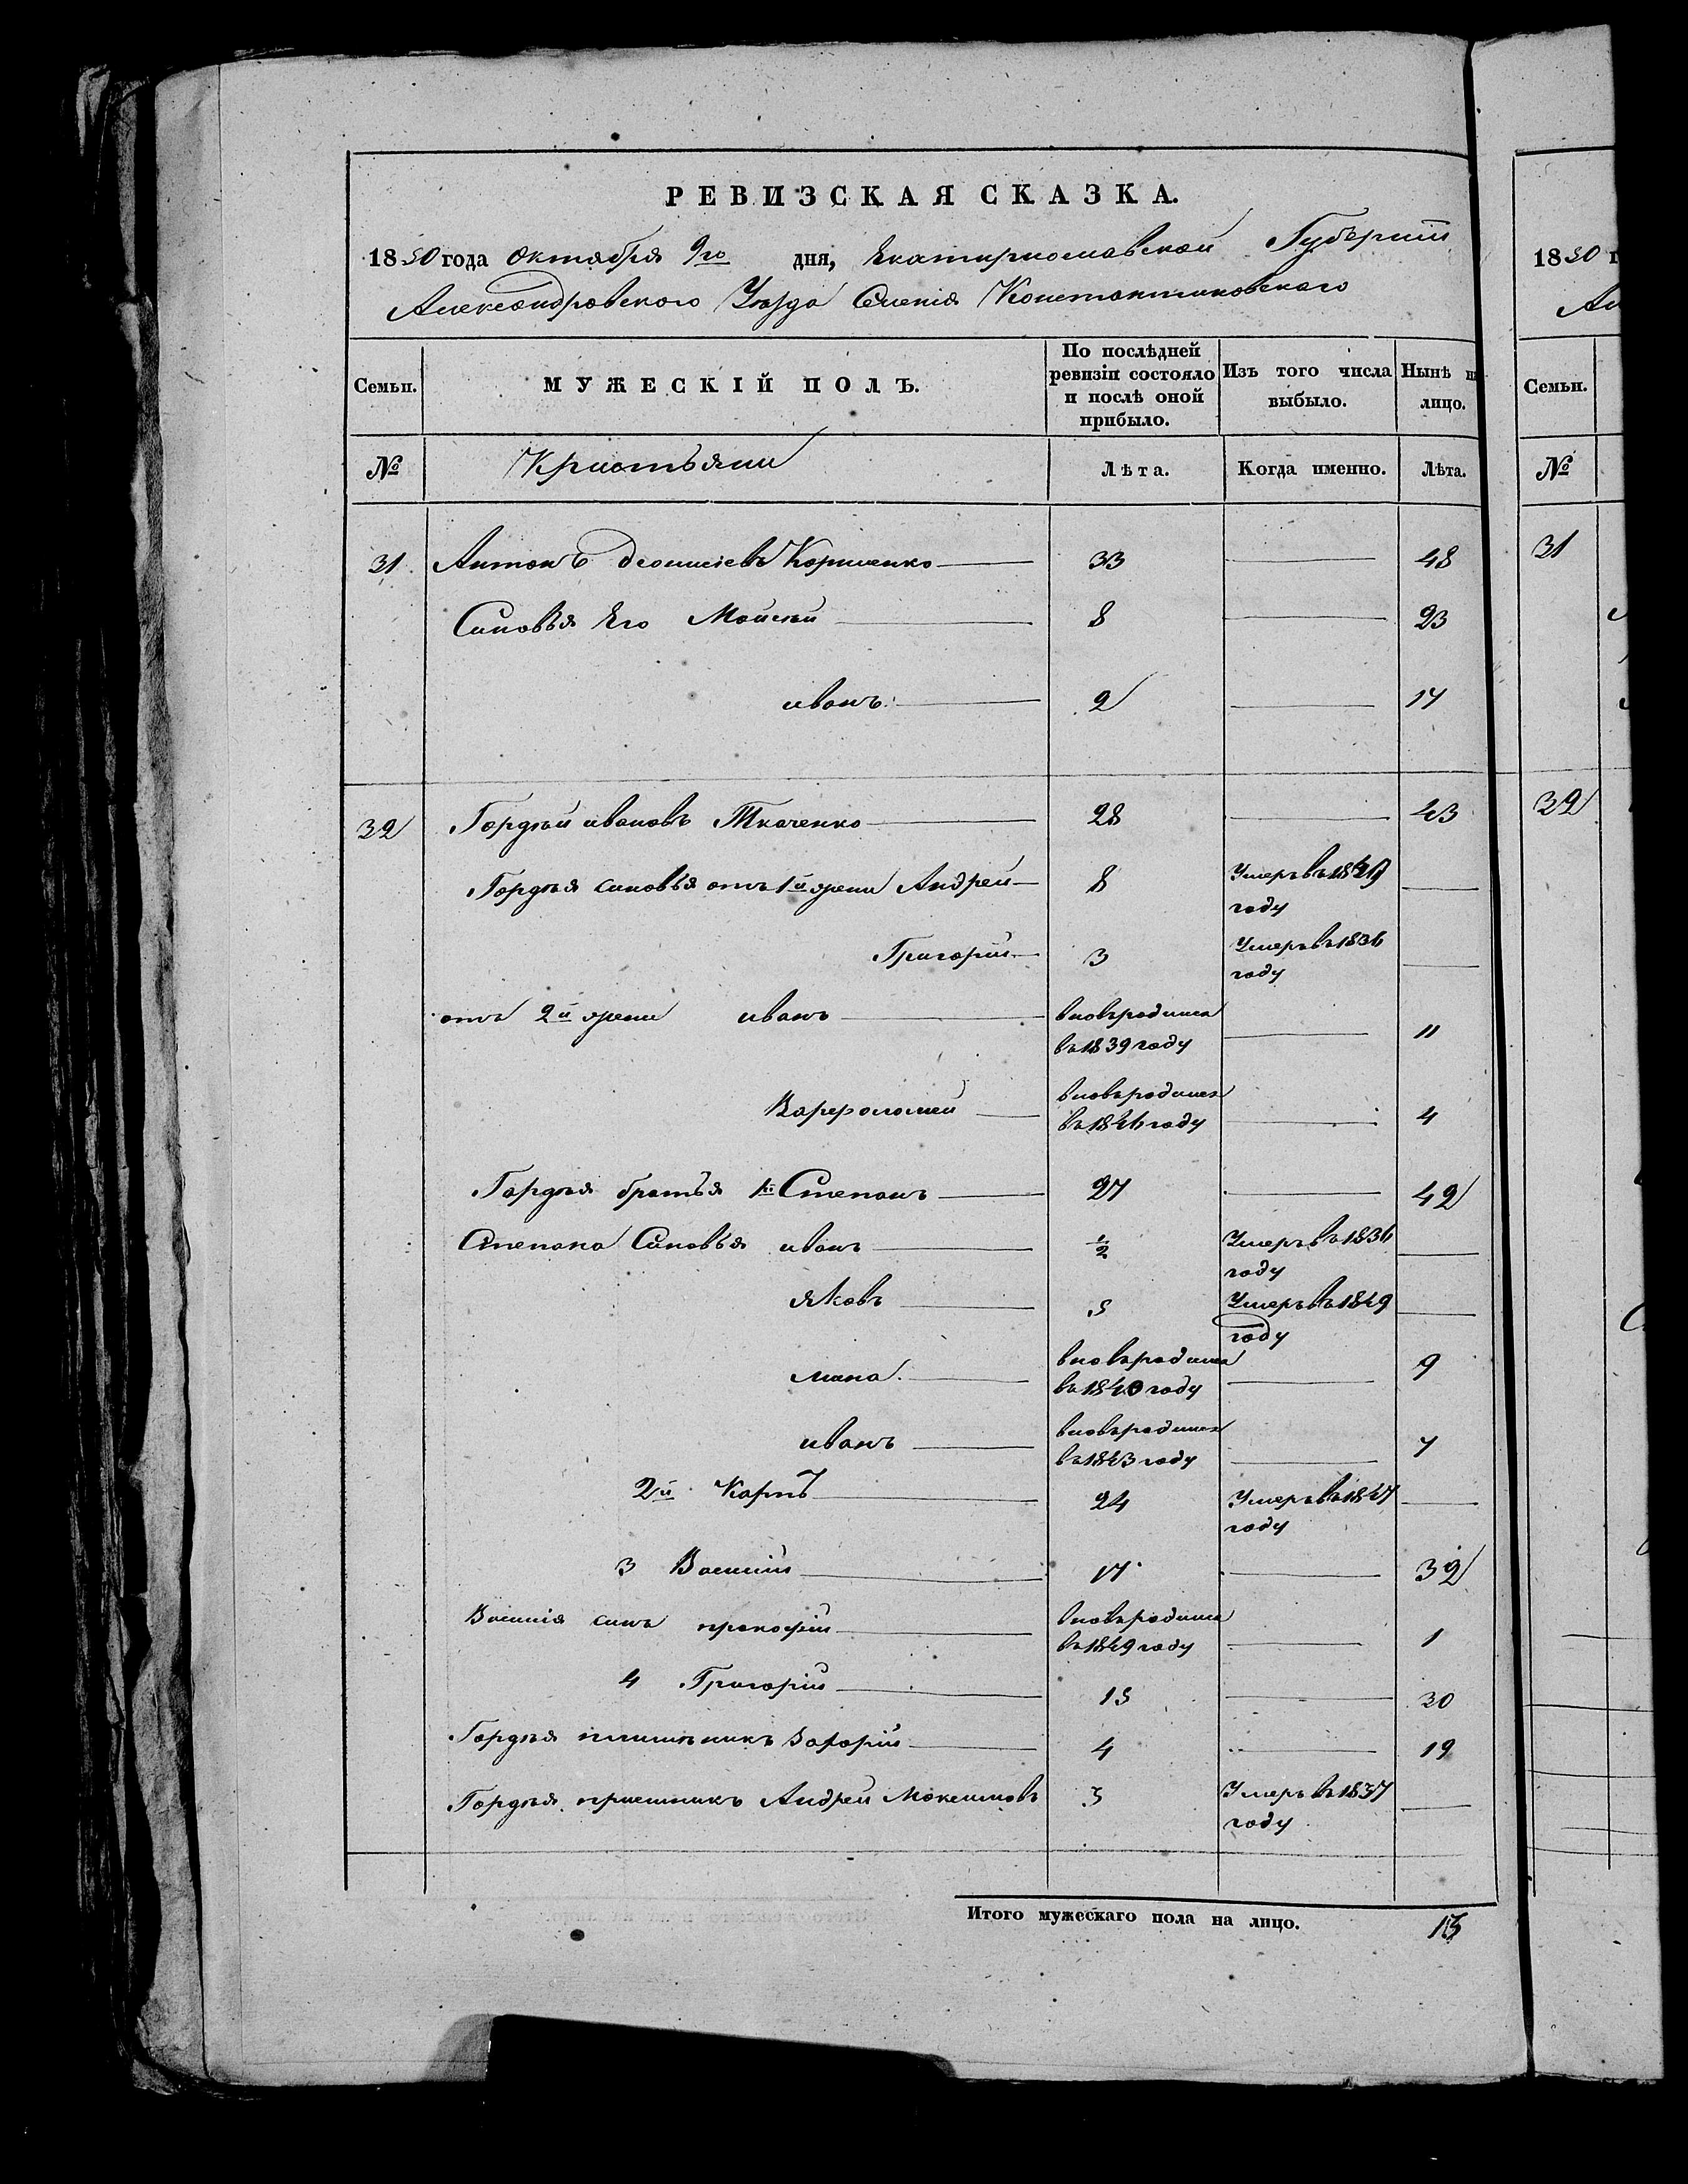 РЕВИЗСКАЯ СКАЗКА.
1850 года Октября 9го дня, Екатириославской Губернии
Александровского Уѣзда Селенія Константиновскаго
Семьи.
МУЖЕСКІЙ ПОЛЪ.
По послѣдней ревизіи состояло и послѣ оной прибыло.
Изъ того числа выбыло.
Нынѣ на лицо.
№ Кристьяни Лѣта. Когда именно. Лѣта.
31 Антонъ Деонисіевъ Корниенко 33 48
Синовья Его Мойсѣй 8 23
иванъ 2 17
32 Гордѣй ивановъ Ткаченко 28 43
Гордѣя синовья отъ 1й жени Андрей 8 Умеръ въ 1849 году
Григорій 3 Умеръ въ 1836 году
отъ 2й жени иванъ вновьродился въ 1839 году 11
Варфоломей вновьродился въ 1846 году 4
Гордѣя братья 1й Степанъ 27 42
Степана Синовья иванъ 1/2 Умеръ въ 1836 году
яковъ 5 Умеръ въ 1849 году
вновьродился въ 1840 году 9
иванъ вновьродился въ 1843 году 7
2й Карпъ 24 Умеръ въ 1847 году
3 Василій 17 32
Василія синъ прокофій вновьродился въ 1849 году 1
4 Григорій 15 30
Гордѣя племѣникъ Захарій 4 19
Гордѣя приемникъ Андрей Макеимовъ 3 Умеръ въ 1837 году
Итого мужескаго пола на лицо. 13
1850 г
Ал
Семьи.
№
31
32